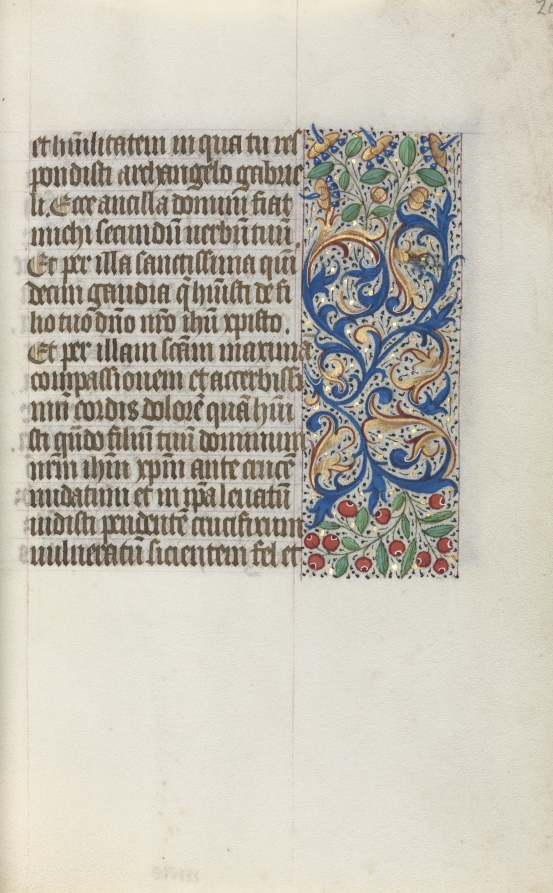 et hũilitatem in qua tu res
pondisti archangelo gabrie
li. Ecce ancilla domini fiat
michi secundũ uerbũ tuũ
Et per illa sanctissima quĩ
decim gaudia q̃ hũisti de fi
lio tuo dño nr̃o ihũ xpisto.
Et per illam scãm maximã
compassionem et acerbissi
mũ cordis dolorẽ quã hũi
sti qñdo filiũ tuũ dominum
nr̃m ihũ xp̃m ante crucẽ
nudatum et in ip̃a leuatũ
uidisti pendentẽ crucifixum
uulneratũ sicientem fel et